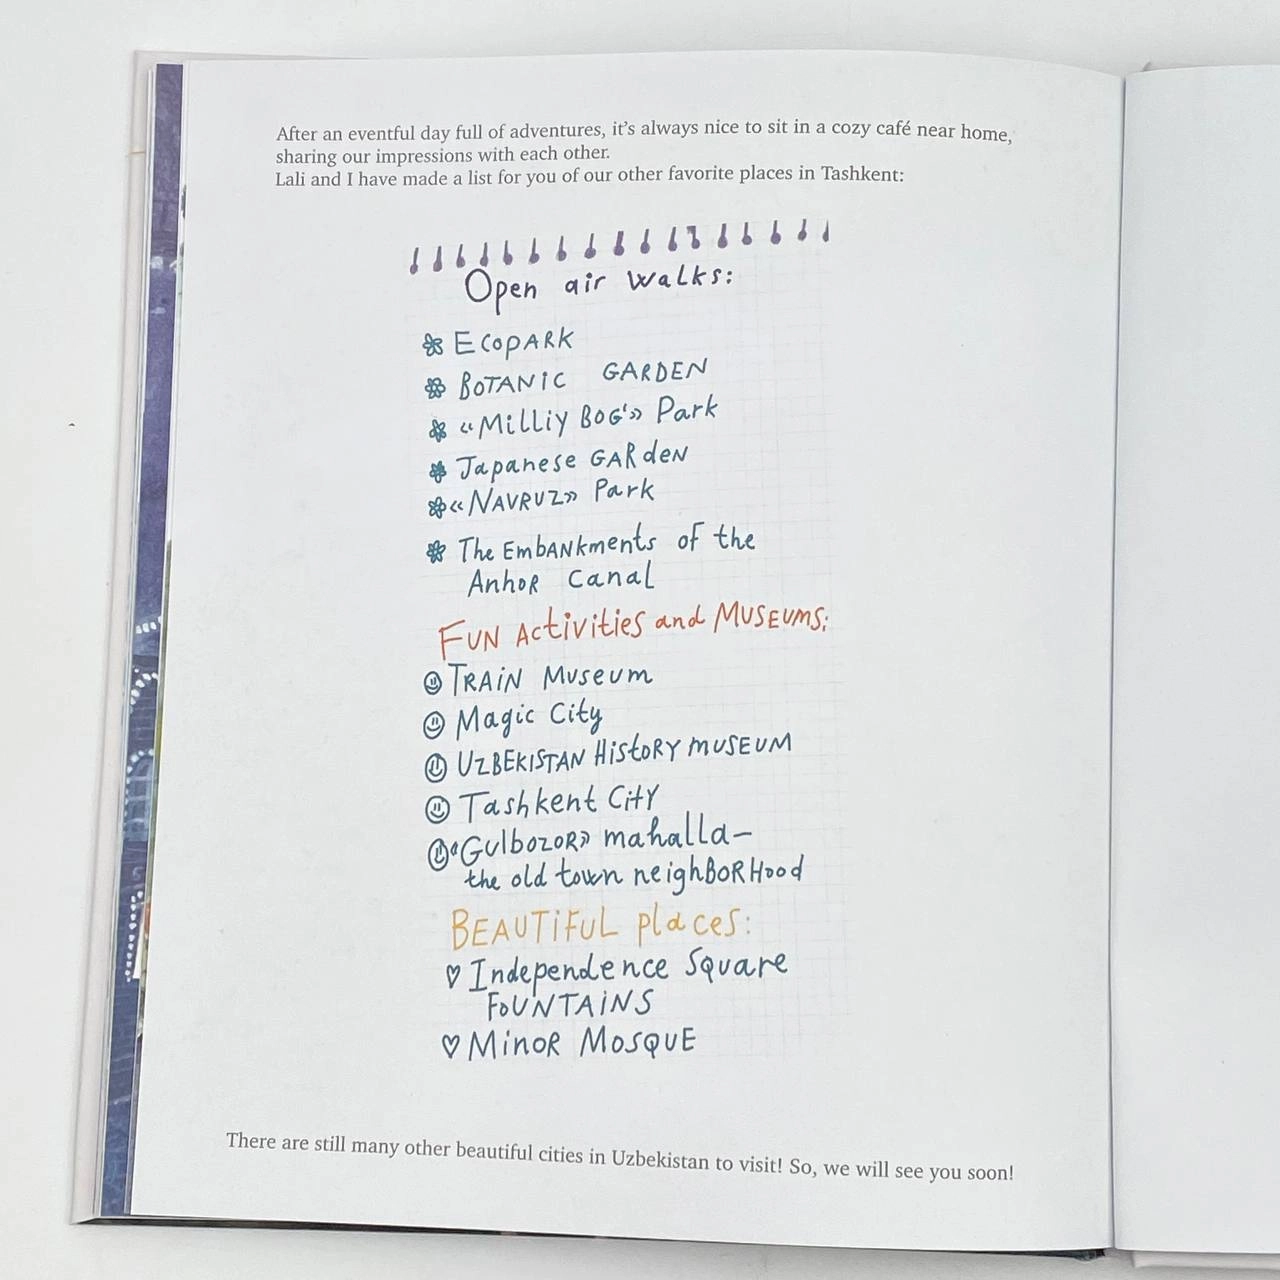 After an eventful day full of adventures, it's always nice to sit in a cozy café near home,
sharing our impressions with each other.
Lali and I have made a list for you of our other favorite places in Tashkent:
Open air walks:
ECOPARK
BOTANIC GARDEN
«Milliy BOG'» Park
Japanese GARdeN
«NAVRUZ» Park
The EmbANkments of the
AnhoR Canal
FUN Activities and MUSEUMS:
TRAiN Museum
Magic City
UZBEKISTAN HiStoRY MUSEUM
Tashkent CitY
«GulbozoR» mahalla–
the old town neighBORHood
BEAUTiFUL places:
Independence Square
FoUNTAiNS
MinoR MosQUE
There are still many other beautiful cities in Uzbekistan to visit! So, we will see you soon!